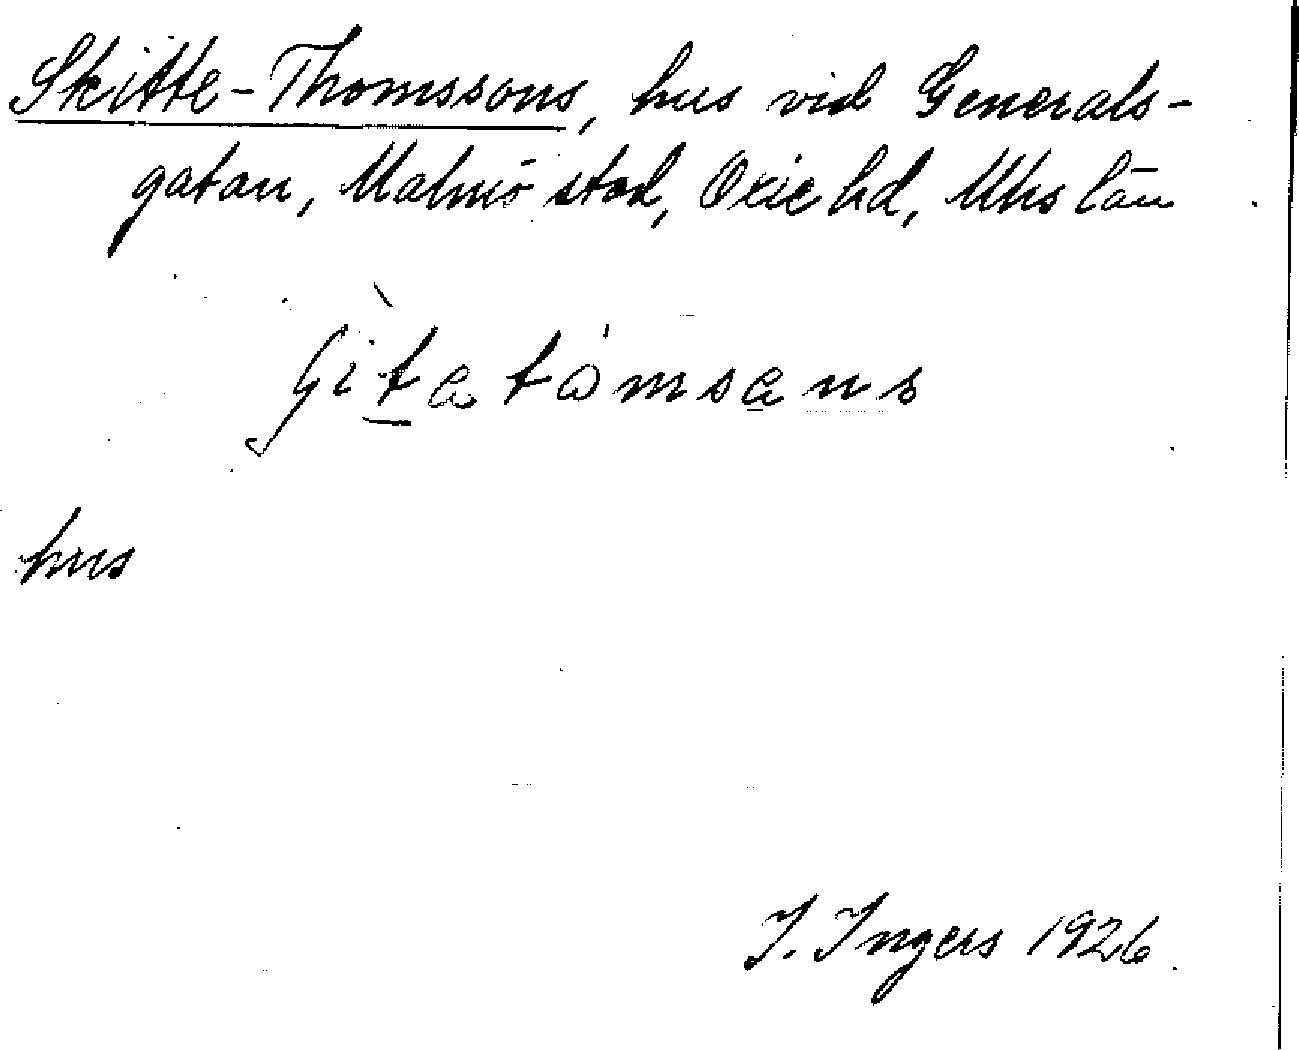 Skitte-Thomssons, hus vid Generals-
gatan, Malmö stad, Oxie hd, Mhs län
hus
I. Ingers 1926